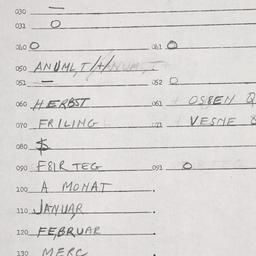 030 —
031 O
040 O 041 O
050 ANUMLT/A/NUMLT
051 — 052 O
060 HERBST 061 OSIEN
070 FRILING 071 VESNE
080 $
090 FEIR TEG 091 O
100 A MONAT
110 JANUAR
120 FEBRUAR
130 MERC